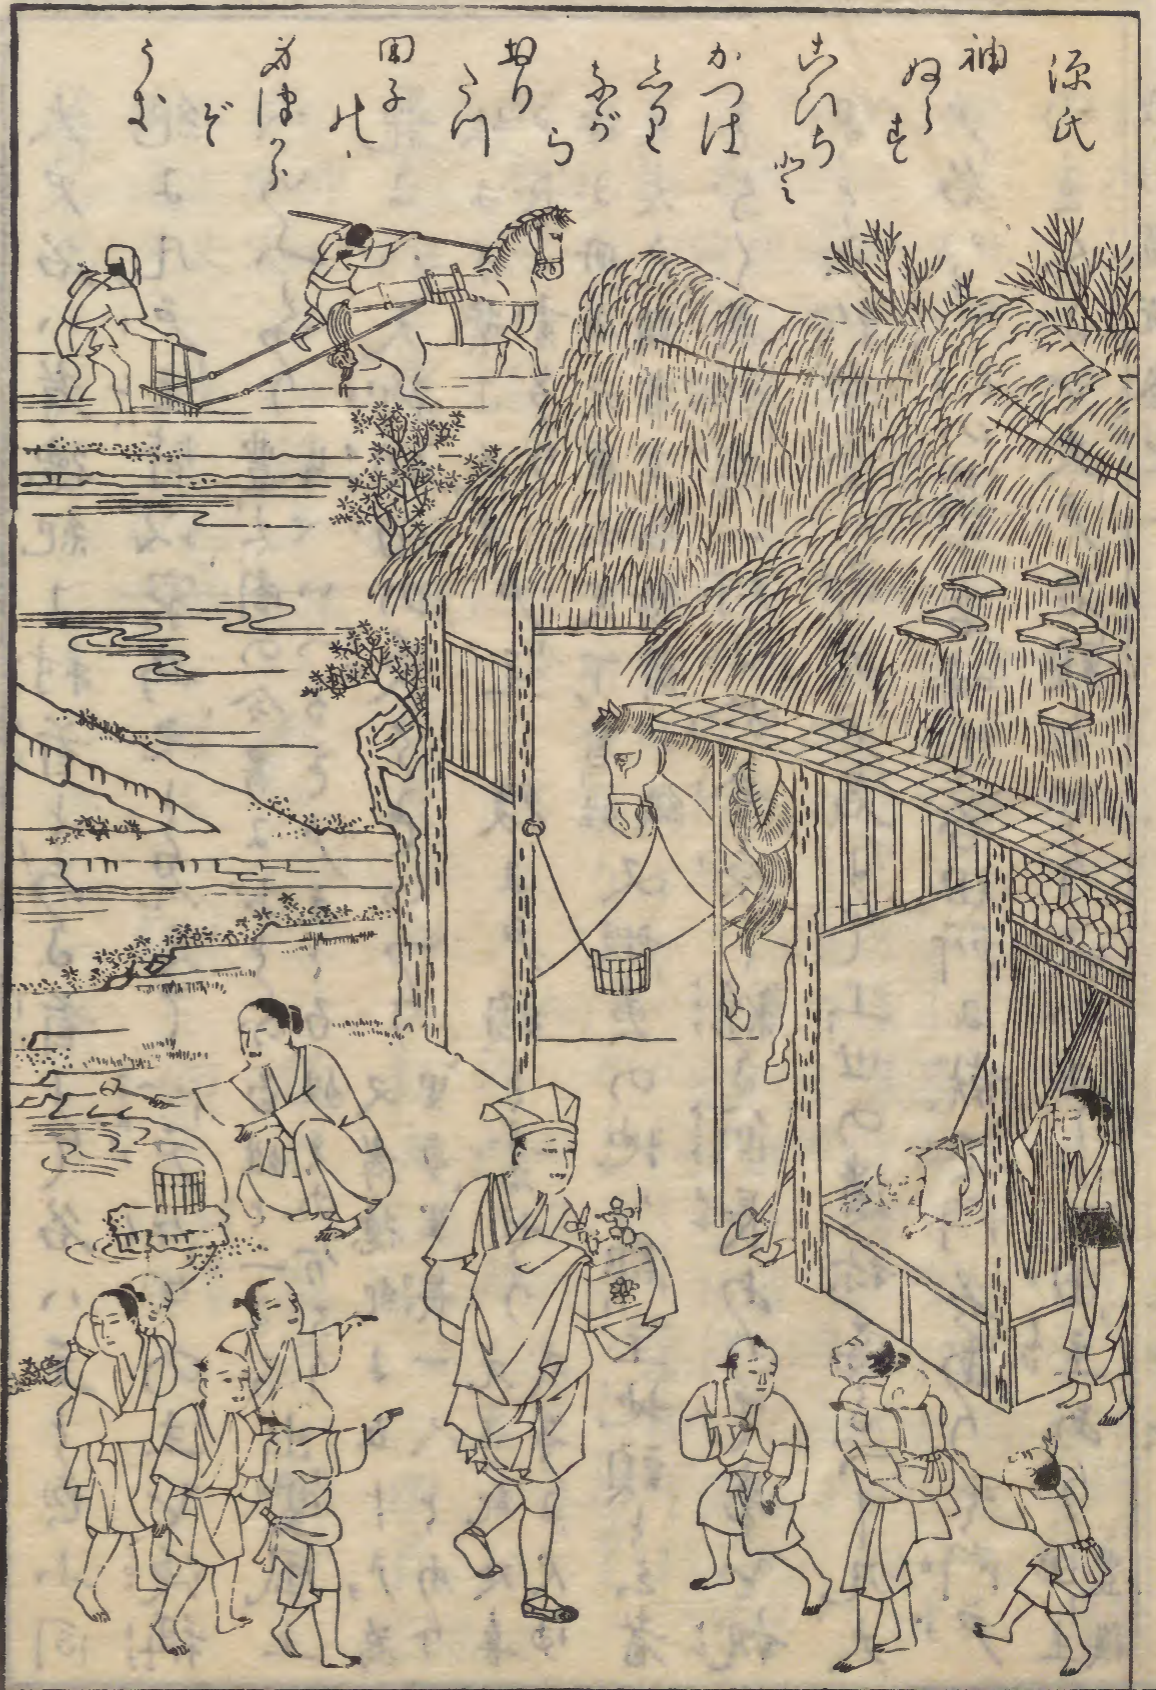 源氏
袖
ぬらす
こひぢと
かつは
しり
ながら
おり
たつ
田子
の
みづから
ぞ
うき